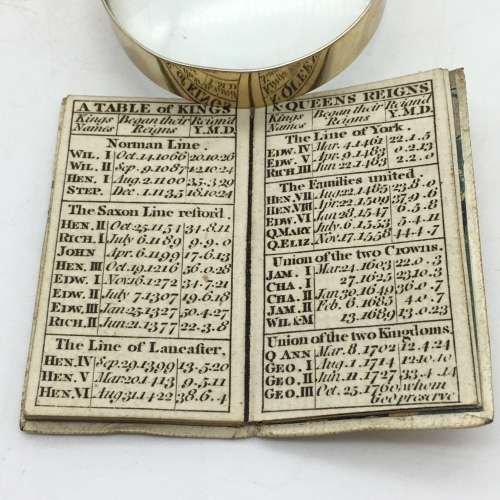 A TABLE of KINGS
Kings Names Began their Reigns Reign'd Y.M.D.
Norman Line.
WIL. I Oct.14.1066 20.10.26
WIL. II Sep.9.1087 12.10.24
HEN. I Aug.2.1100 35.3.29
STEP. Dec.1.1135 18.10.24
The Saxon Line restor'd.
HEN. II Oct.25.1154 34.8.11
RICH. I July 6.1189 9.9.0
JOHN Apr.6.1199 17.6.13
HEN. III Oct.19.1216 56.0.28
EDW. I Nov.16.1272 34.7.21
EDW. II July 7.1307 19.6.18
EDW. III Jan.25.1327 50.4.27
RICH. II Jun.21.1377 22.3.8
The Line of Lancaster.
HEN. IV Sep.29.1399 13.5.20
HEN. V Mar.20.1413 9.5.11
HEN. VI Aug.31.1422 38.6.4
& QUEENS REIGNS
Kings Names Began their Reigns Reign'd Y.M.D.
The Line of York.
EDW. IV Mar.4.1461 22.1.5
EDW. V Apr.9.1483 0.2.13
RICH III Jun.22.1483 2.2.0
The Families united.
HEN. VII Aug.22.1485 23.8.0
HEN. VIII Apr.22.1509 37.9.6
EDW. VI Jan.28.1547 6.5.8
Q.MARY July.6.1553 5.4.11
Q.ELIZ. Nov.17.1558 44.4.7
Union of the two Crowns.
JAM. I Mar.24.1603 22.0.3
CHA. I 27.1625 23.10.3
CHA. II Jan.30.1649 36.0.7
JAM. II Feb.6.1685 4.0.7
WIL&M 13.1689 13.0.23
Union of the two Kingdoms.
Q ANN Mar.8.1702 12.4.24
GEO. I Aug.1.1714 12.10.10
GEO. II Jun.11.1727 33.4.14
GEO. III Oct.25.1760 whom
God preserve